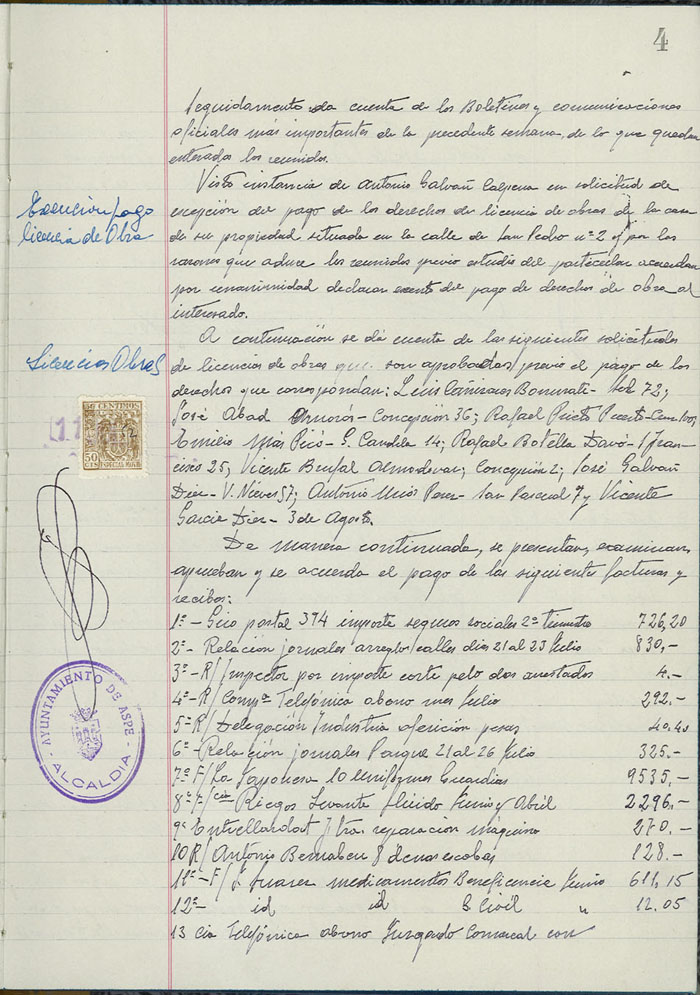 4
Seguidamente da cuenta de los Boletines y comunicaciones
oficiales más importantes de la precedente semana, de lo que quedan
enterados los reunidos.
Exencion pago
licencia de Obra
Vista instancia de Antonio Galvañ Calpena en solicitud de
excepción del pago de los derechos de licencia de obras de la casa
de su propiedad situada en la calle de San Pedro nº 2 y por las
razones que aduce los reunidos previo estudio del particular acuerdan
por unanimidad declarar exento del pago de derechos de obra al
interesado.
Licencias Obras
A continuación se dá cuenta de las siguientes solicitudes
de licencias de obras que son aprobadas previo el pago de los
derechos que correspondan: Luis Cañizares 72;
José Abad Amorós - Concepción 36; Rafael Prieto Puerto -
Emilio Mas Picó - S. Candela 14; Rafael Botella Davó -
25, Vicente Brufal Almodovar, Concepción 2; José Galvañ
Diez - V. Nieves 57; Antonio Perez - San Pascual 7 y Vicente
Garcia Diez - 3 de Agosto.
De manera continuada, se presentan, examinan,
aprueban y se acuerda el pago de las siguiente facturas y
recibos:
1º - Giro postal 394 importe seguros sociales 2º Trimestre 726,20
2º - Relación jornales arreglo calles dias 21 al 25 Julio 830,-
3º - R/ Inspector por importe corte pelo dos arrestados 4.-
4º - R/ Compª Telefónica abono mes Julio 292.-
5º R/ Delegación Industria aferición pesas 40.40
6º - Relación jornales Parque 21 al 26 Julio 325.-
7º F/ La Japonesa 10 uniformes Guardias 9535,-
8º F/ Cia Riegos Levante fluido Junio y Abril 2296.-
9º reparación máquina 270.-
10 R/ Antonio Bernabeu 8 docenas escobas 128.-
11º - F/ J. Juarez medicamentos Beneficencia Junio 611,15
12º - id id G Civil " 12.05
13 Cia Telefónica abono Juzgado Comarcal con
50 CENTIMOS
50 CTS
ESPECIAL MOVIL
AYUNTAMIENTO DE ASPE
- ALCALDIA -